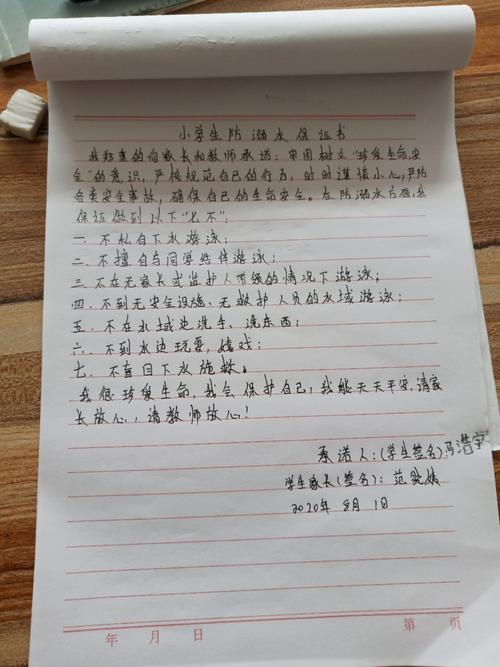 小学生防溺水保证书
我郑重的向家长和教师承诺：牢固树立“珍爱生命，安
全”的意识，严格规范自己的行为，时时谨慎小心，严防
各类安全事故，确保自己的生命安全。在防溺水方面，我
保证做到以下“七不”：
一．不私自下水游泳；
二．不擅自与同学结伴游泳；
三．不在无家长或监护人带领的情况下游泳；
四．不到无安全设施、无救护人员的水域游泳；
五．不在水域边洗手、洗东西；
六．不到水边玩耍，嬉戏；
七．不盲目下水施救。
我很珍爱生命，我会保护自己，我能天天平安，请家
长放心，请教师放心！
承诺人：（学生签名）冯浩宇
学生家长（签名）：范
2020年8月1日
年 月 日 第 页